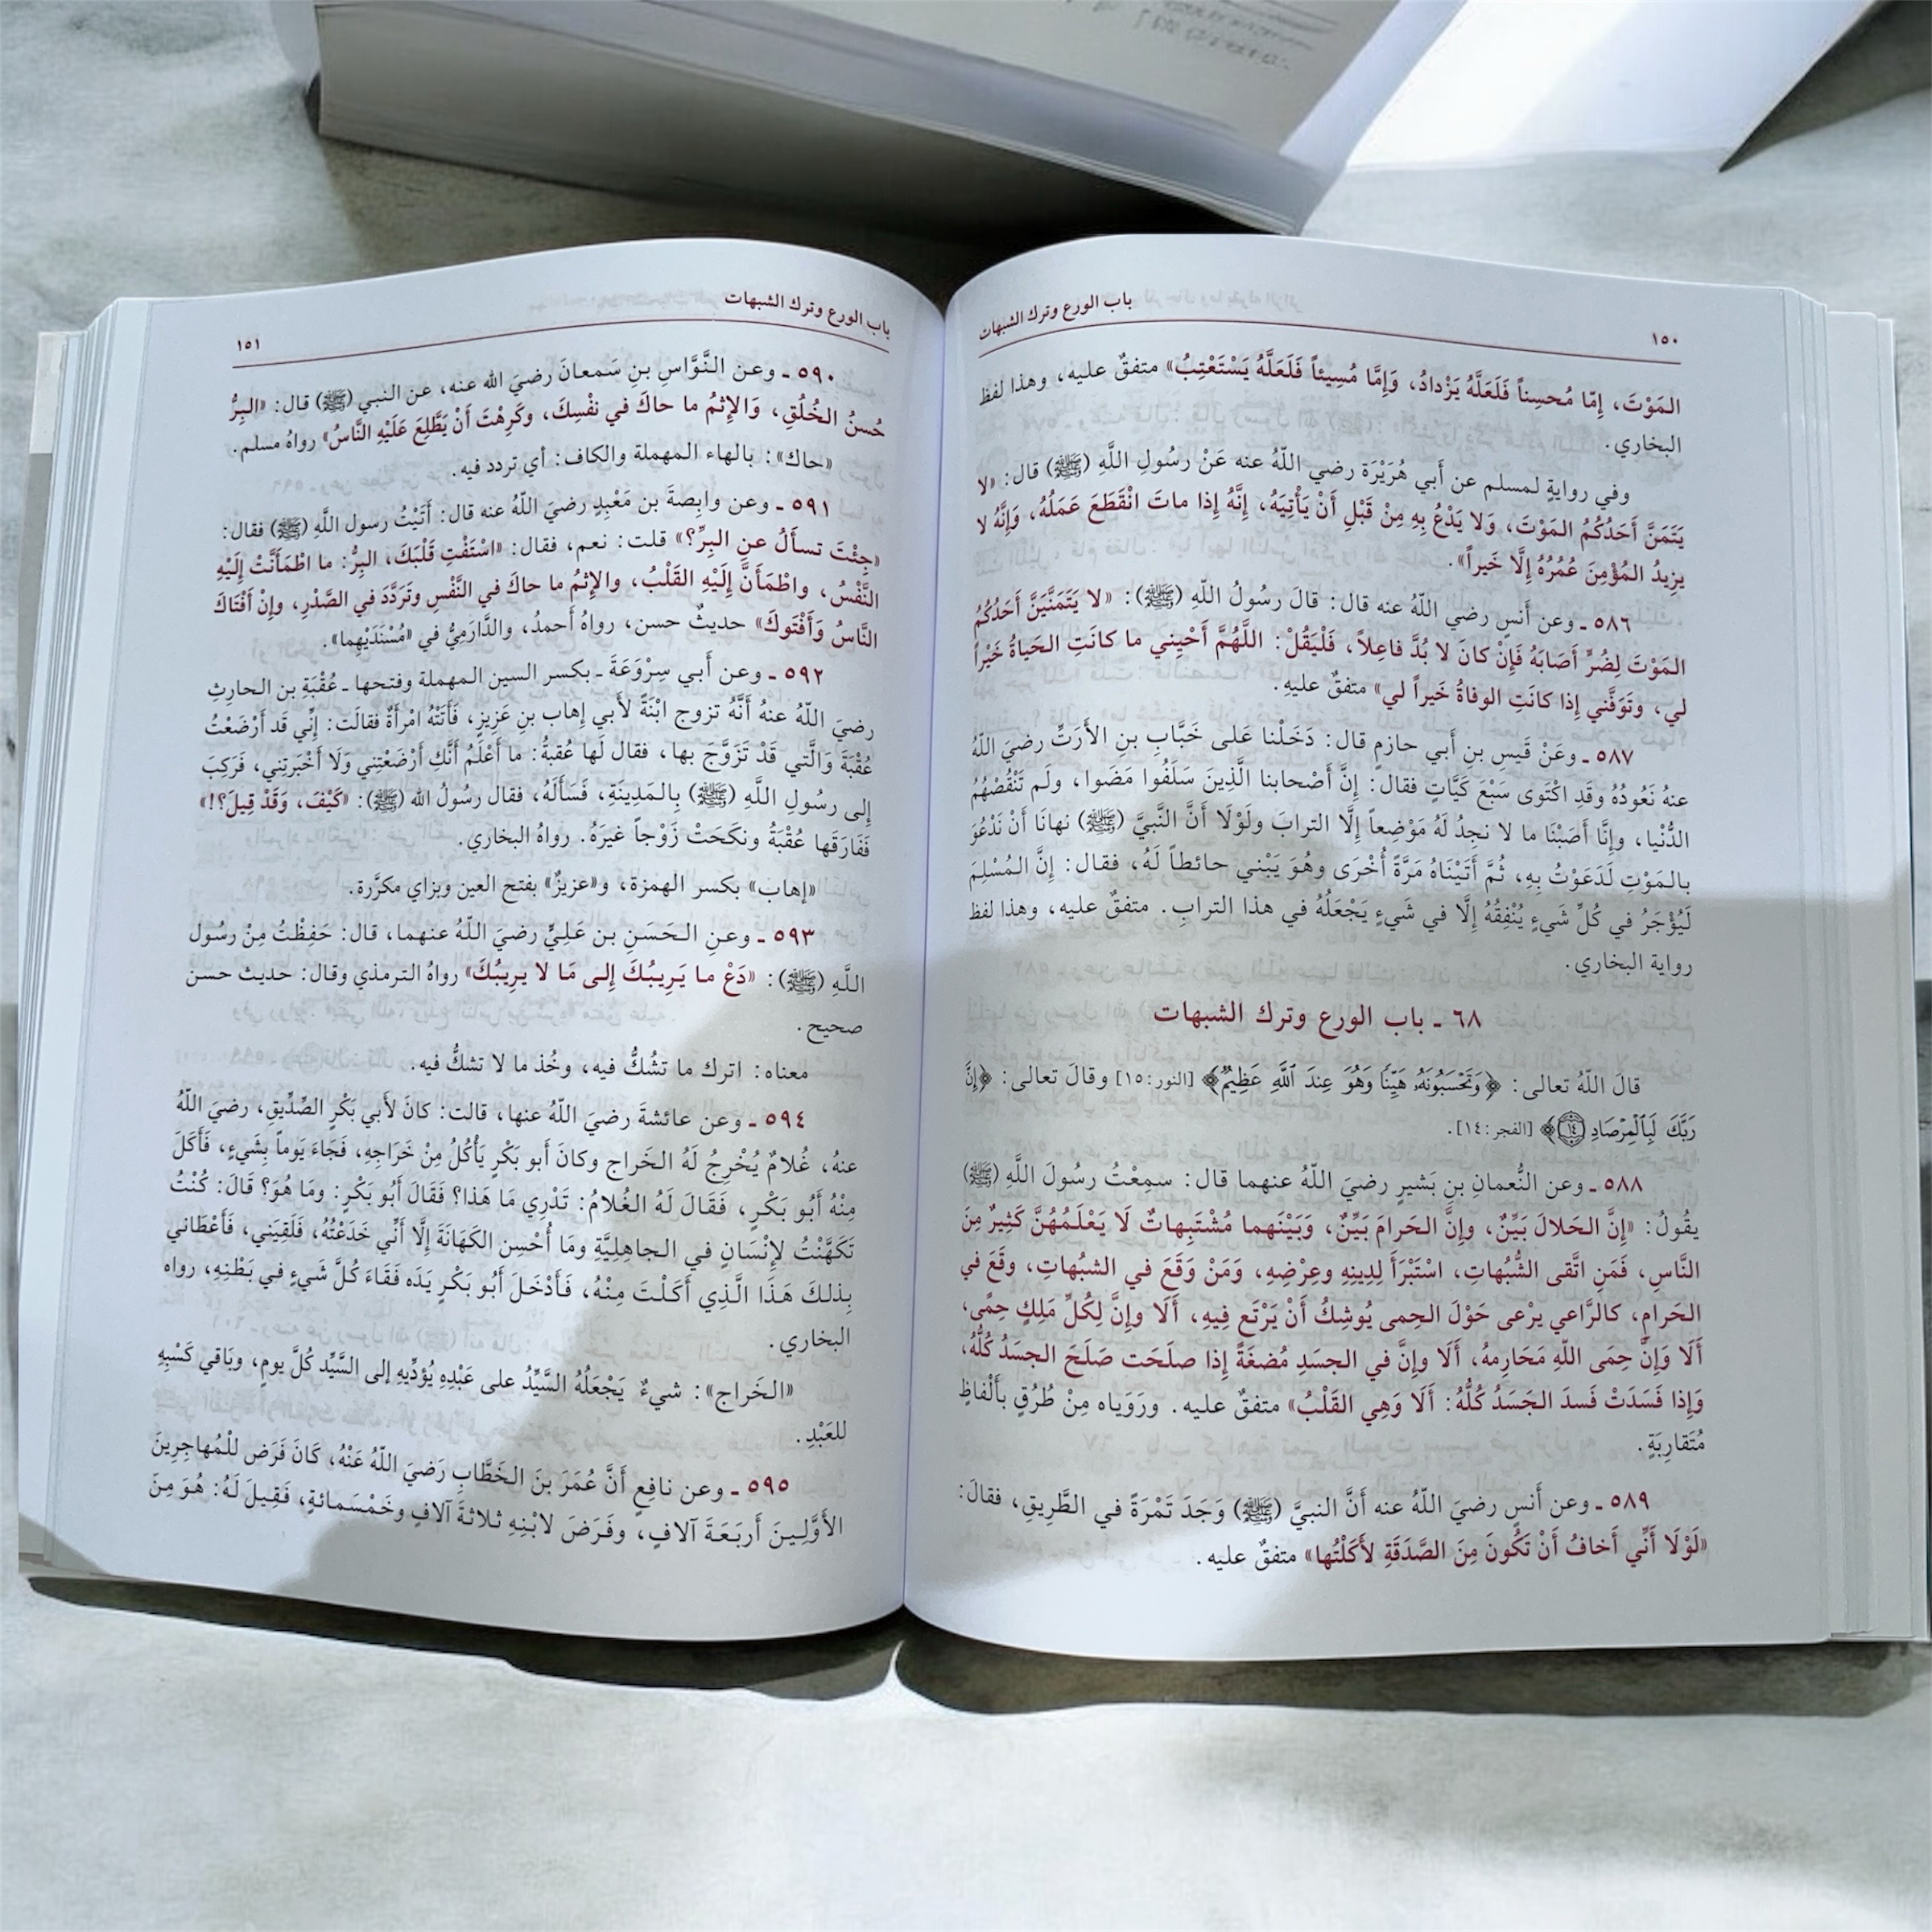 باب الورع وترك الشبهات
١٥٠
المَوْتَ، إِمّا مُحسِناً فَلَعَلَّهُ يَزْدادُ، وَإِمَّا مُسِيئاً فَلَعَلَّهُ يَسْتَعْتِبُ» متفقٌ عليه، وهذا لفظ
البخاري.
وفي روايةٍ لمسلم عن أَبي هُرَيْرَة رضي اللّهُ عنه عَنْ رسُولِ اللَّهِ (ﷺ) قال: «لا
يَتَمَنَّ أَحَدُكُمُ المَوْتَ، وَلا يَدْعُ بِهِ مِنْ قَبْلِ أَنْ يَأْتِيَهُ، إِنَّهُ إِذا ماتَ انْقَطَعَ عَمَلُهُ، وَإِنَّهُ لا
يزِيدُ المُؤْمِنَ عُمُرُهُ إِلَّا خَيراً».
٥٨٦ ـ وعن أَنسٍ رضي اللّهُ عنه قال: قالَ رسُولُ اللّهِ (ﷺ): «لا يَتَمَنَّيَنَّ أَحَدُكُمُ
المَوْتَ لِضُرٍّ أَصَابَهُ فَإِنْ كانَ لا بُدَّ فاعِلاً، فَلْيَقُلْ: اللَّهُمَّ أَحْيِني ما كانَتِ الحَياةُ خَيْراً
لي، وتَوَفَّني إِذا كانَتِ الوفاةُ خَيراً لي» متفقٌ عليهِ.
٥٨٧ ـ وعَنْ قَيسِ بنِ أَبي حازمٍ قال: دَخَلْنا عَلى خَبَّابِ بنِ الأَرَتِّ رضيَ اللّهُ
عنهُ نَعُودُهُ وقَدِ اكْتَوَى سَبْعَ كَيَّاتٍ فقال: إِنَّ أَصْحابنا الَّذِينَ سَلَفُوا مَضَوا، ولَم تَنْقُصْهُمُ
الدُّنْيا، وإِنَّا أَصَبْنَا ما لا نجِدُ لَهُ مَوْضِعاً إِلَّا الترابَ ولَوْلَا أَنَّ النَّبيَّ (ﷺ) نهانَا أَنْ نَدْعُوَ
بالمَوْتِ لَدَعَوْتُ بِهِ، ثُمَّ أَتَيْنَاهُ مَرَّةً أُخْرَى وهُوَ يَبْني حائطاً لَهُ، فقال: إِنَّ المُسْلِمَ
لَيُؤْجَرُ في كُلِّ شَيءٍ يُنْفِقُهُ إِلَّا في شَيءٍ يَجْعَلُهُ في هذا الترابِ. متفقٌ عليه، وهذا لفظ
رواية البخاري.
٦٨ ـ باب الورع وترك الشبهات
قالَ اللّهُ تعالى: ﴿وَتَحْسَبُونَهُۥ هَيِّنًا وَهُوَ عِندَ ٱللَّهِ عَظِيمٌ﴾ [النور: ١٥] وقالَ تعالى: ﴿إِنَّ
رَبَّكَ لَبِٱلْمِرْصَادِ ١٤﴾ [الفجر: ١٤].
٥٨٨ ـ وعن النُّعمانِ بنِ بَشيرٍ رضيَ اللّهُ عنهما قال: سمِعْتُ رسُولَ اللَّهِ (ﷺ)
يقُولُ: «إِنَّ الحَلالَ بَيِّنٌ، وإِنَّ الحَرامَ بَيِّنٌ، وَبَيْنَهما مُشْتَبِهاتٌ لَا يَعْلَمُهُنَّ كَثِيرٌ مِنَ
النَّاسِ، فَمَنِ اتَّقى الشُّبُهاتِ، اسْتَبْرَأَ لِدِينِهِ وعِرْضِهِ، وَمَنْ وَقَعَ في الشبُهاتِ، وقَعَ في
الحَرامِ، كالرَّاعي يرْعى حَوْلَ الحِمى يُوشِكُ أَنْ يَرْتَع فِيهِ، أَلَا وإِنَّ لِكُلِّ مَلِكٍ حِمًى،
أَلَا وَإِنَّ حِمَى اللّهِ مَحَارِمهُ، أَلَا وإِنَّ في الجسَدِ مُضغَةً إِذا صلَحَت صَلَحَ الجسَدُ كُلُّهُ،
وَإِذا فَسَدَتْ فَسدَ الجَسَدُ كُلُّهُ: أَلَا وَهِي القَلْبُ» متفقٌ عليه. ورَوَياه مِنْ طُرُقٍ بأَلْفاظٍ
مُتَقارِبَةٍ.
٥٨٩ ـ وعن أَنسٍ رضيَ اللّهُ عنه أَنَّ النبيَّ (ﷺ) وَجَدَ تَمْرَةً في الطَّرِيقِ، فقالَ:
«لَوْلَا أَنِّي أَخافُ أَنْ تَكُونَ مِنَ الصَّدَقَةِ لأَكَلْتُها» متفقٌ عليه.
باب الورع وترك الشبهات
١٥١
٥٩٠ ـ وعن النَّوَّاسِ بنِ سَمعانَ رضيَ الله عنه، عن النبي (ﷺ) قال: «البِرُّ
حُسنُ الخُلُقِ، وَالإِثمُ ما حاكَ في نفْسِكَ، وكَرِهْتَ أَنْ يَطَّلِعَ عَلَيْهِ النَّاسُ» رواهُ مسلم.
«حاك»: بالهاء المهملة والكاف: أي تردد فيه.
٥٩١ ـ وعن وابِصةَ بن مَعْبِدٍ رضيَ اللّهُ عنه قال: أَتَيْتُ رسول اللَّهِ (ﷺ) فقال:
«جِئْتَ تسأَلُ عنِ البِرِّ؟» قلت: نعم، فقال: «اسْتَفْتِ قَلْبَكَ، البِرُّ: ما اطْمَأَنَّتْ إِلَيْهِ
النَّفْسُ، واطْمَأَنَّ إِلَيْهِ القَلْبُ، والإِثمُ ما حاكَ في النَّفْسِ وتَرَدَّدَ في الصَّدْرِ، وإِنْ أَفْتَاكَ
النَّاسُ وَأَفْتَوكَ» حديثٌ حسن، رواهُ أَحمدُ، والدَّارَمِيُّ في «مُسْنَدَيْهِما».
٥٩٢ ـ وعن أَبي سِرْوَعَةَ ـ بكسر السين المهملة وفتحها ـ عُقْبَةِ بن الحارِثِ
رضيَ اللّهُ عنهُ أَنَّهُ تزوج ابْنَةً لأَبي إِهاب بنِ عَزِيزٍ، فَأَتَتْهُ امْرأَةٌ فقالَت: إِنِّي قَد أَرْضَعْتُ
عُقْبَةَ وَالَّتي قَدْ تَزَوَّجَ بها، فقال لَها عُقبةُ: ما أَعْلَمُ أَنَّكِ أَرْضَعْتِني وَلَا أَخْبَرتِني، فَرَكِبَ
إِلى رسُولِ اللَّهِ (ﷺ) بِالمَدِينَةِ، فَسَأَلَهُ، فقال رسُولُ الله (ﷺ): «كَيْفَ، وَقَدْ قِيلَ؟!»
فَفَارَقَها عُقْبَةُ ونكَحَتْ زَوْجاً غيرَهُ. رواهُ البخاري.
«إِهاب» بكسر الهمزة، و«عزيزٌ» بفتح العين وبزاي مكرَّرة.
٥٩٣ ـ وعنِ الحَسَنِ بن عَلِيٍّ رضيَ اللّهُ عنهما، قال: حَفِظْتُ مِنْ رسُول
اللَّهِ (ﷺ): «دَعْ ما يَرِيبُكَ إِلى مَا لا يرِيبُكَ» رواهُ الترمذي وقال: حديث حسن
صحيح.
معناه: اترك ما تشُكُّ فيه، وخُذ ما لا تشكُّ فيه.
٥٩٤ ـ وعن عائشةَ رضيَ اللّهُ عنها، قالت: كانَ لأَبي بَكْرٍ الصِّدِّيقِ، رضيَ اللّهُ
عنهُ، غُلامٌ يُخْرِجُ لَهُ الخَراج وكانَ أَبو بَكْرٍ يَأْكُلُ مِنْ خَرَاجِهِ، فَجَاءَ يَوماً بِشَيءٍ، فَأَكَلَ
مِنْهُ أَبُو بَكْرٍ، فَقَالَ لَهُ الغُلامُ: تَدْرِي مَا هَذا؟ فَقَالَ أَبُو بَكْرٍ: ومَا هُوَ؟ قَالَ: كُنْتُ
تَكَهَّنْتُ لإِنْسَانٍ في الجاهِلِيَّةِ ومَا أُحْسِن الكَهَانَةَ إِلَّا أَنِّي خَدَعْتُهُ، فَلَقِيَني، فَأَعْطَاني
بِذلكَ هَذَا الَّذِي أَكَلْتَ مِنْهُ، فَأَدْخَلَ أَبُو بَكْرٍ يَدَه فَقَاءَ كُلَّ شَيءٍ في بَطْنِهِ، رواه
البخاري.
«الخَراج»: شيءٌ يَجْعَلُهُ السَّيِّدُ على عَبْدِهِ يُؤدِّيهِ إِلى السَّيِّد كُلَّ يومٍ، وبَاقي كَسْبِهِ
للعَبْدِ.
٥٩٥ ـ وعن نافِعٍ أَنَّ عُمَرَ بنَ الخَطَّابِ رَضيَ اللّهُ عَنْهُ، كَانَ فَرَض لِلْمُهاجِرِينَ
الأَوَّلِينَ أَربَعَةَ آلافٍ، وفَرَضَ لابْنِهِ ثلاثةَ آلافٍ وخَمْسَمائةٍ، فَقِيلَ لَهُ: هُوَ مِنَ